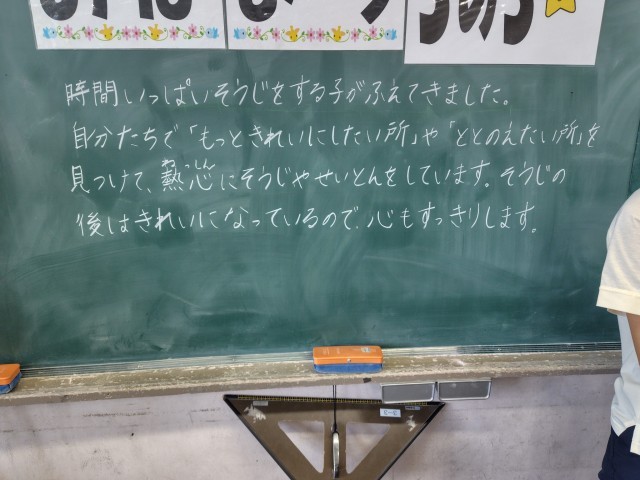 時間いっぱいそうじをする子がふえてきました。
自分たちで「もっときれいにしたい所」や「ととのえたい所」を
見つけて、熱心にそうじやせいとんをしています。そうじの
ねっしん
後はきれいになっているので、心もすっきりします。
3-3